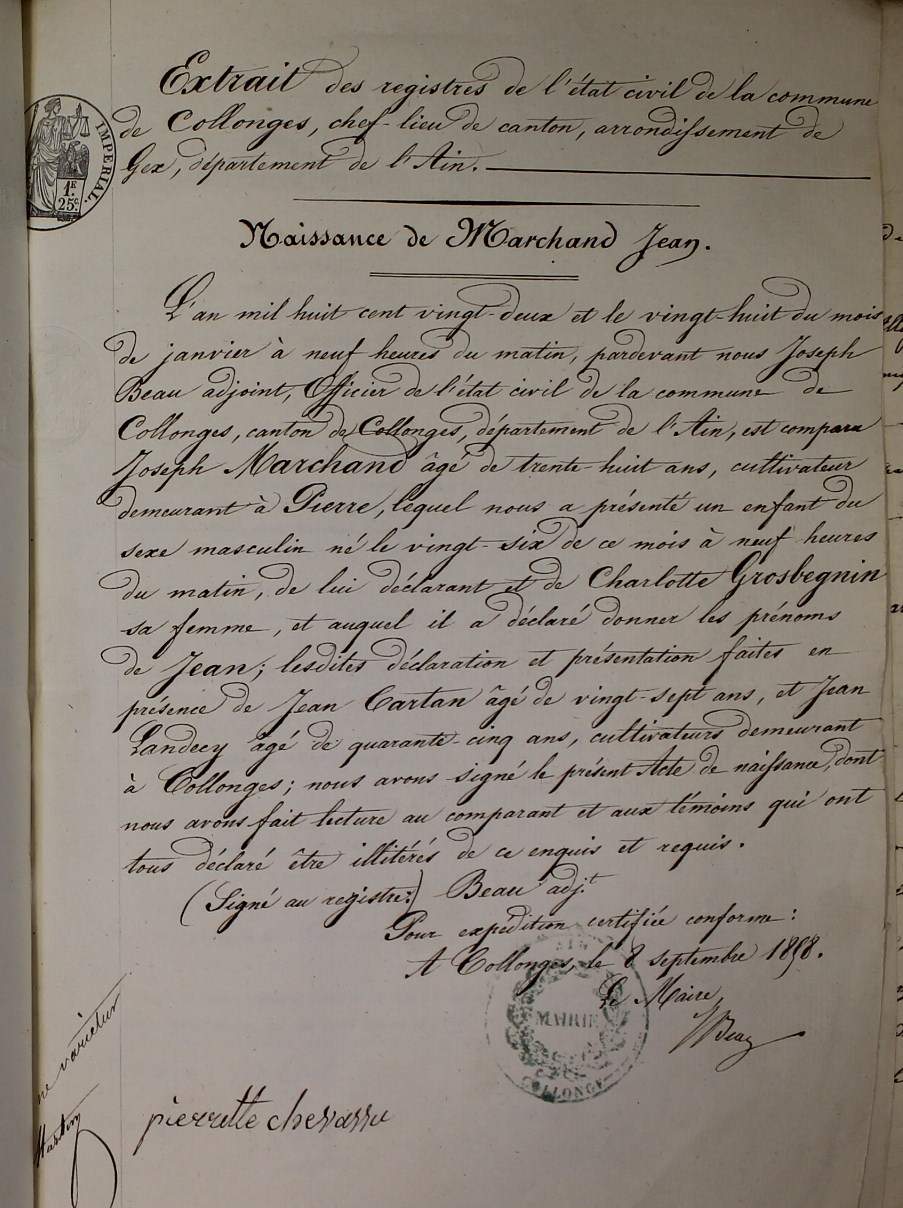 Extrait des registres de l'état civil de la commune
de Collonges, chef-lieu de canton, arrondissement de
Gex, département de l'Ain.
IMPERIAL.
1F.
25c.
Naissance de Marchand Jean.
L'an mil huit cent vingt-deux et le vingt-huit du mois
de janvier à neuf heures du matin, pardevant nous Joseph
Beau adjoint, Officier de l'état civil de la commune de
Collonges, canton de Collonges, département de l'Ain, est comparu
Joseph Marchand âgé de trente-huit ans, cultivateur
demeurant à Pierre, lequel nous a présenté un enfant du
sexe masculin né le vingt-six de ce mois à neuf heures
du matin, de lui déclarant et de Charlotte Grosbegnin
sa femme, et auquel il a déclaré donner les prénoms
de Jean; lesdites déclaration et présentation faites en
présence de Jean Cartan âgé de vingt-sept ans, et Jean
Landecy âgé de quarante-cinq ans, cultivateurs demeurant
à Collonges; nous avons signé le présent Acte de naissance, dont
nous avons fait lecture au comparant et aux témoins qui ont
tous déclaré être illitérés de ce enquis et requis.
(Signé au registre:) Beau adjt
Pour expédition certifiée conforme:
A Collonges, le 8 septembre 1858.
Le Maire,
MAIRIE
COLLONGES
ne varietur
pierrette chevassu